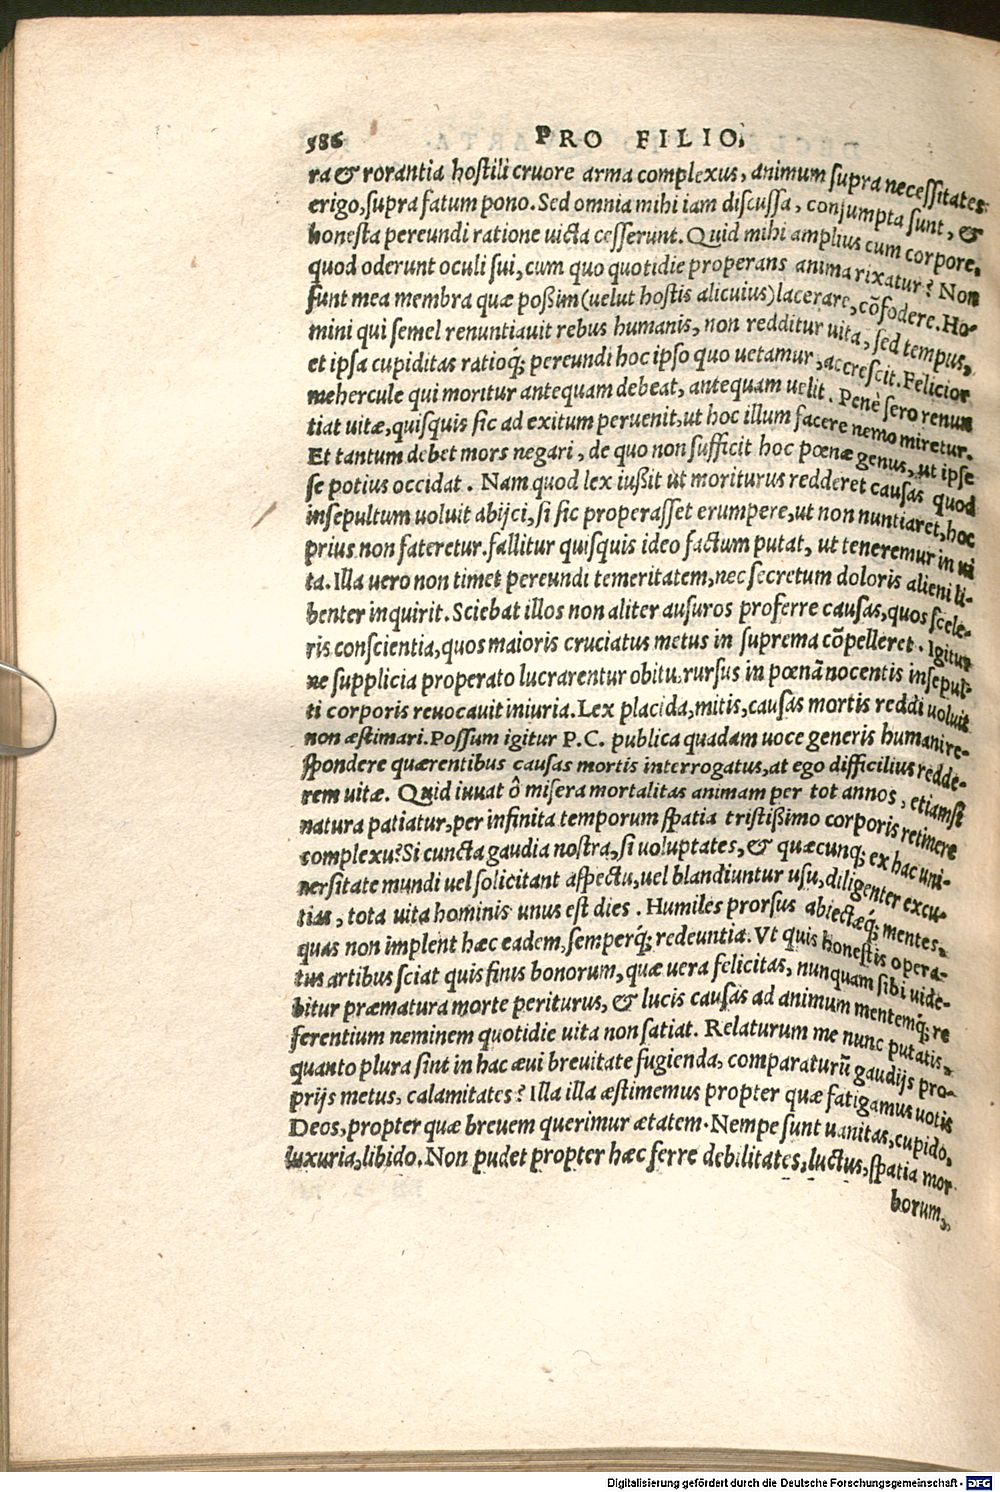 586 PRO FILIO,
ra & rorantia hostili cruore arma complexus, animum supra necessitates
erigo, supra fatum pono. Sed omnia mihi iam discussa, consumpta sunt, &
honesta pereundi ratione uicta cesserunt. Quid mihi amplius cum corpore,
quod oderunt oculi sui, cum quo quotidie properans anima rixatur? Non
sunt mea membra quæ poßim (uelut hostis alicuius) lacerare, cõfodere. Ho-
mini qui semel renuntiauit rebus humanis, non redditur uita, sed tempus,
et ipsa cupiditas ratioq; pereundi hoc ipso quo uetamur, accrescit. Felicior
mehercule qui moritur antequam debeat, antequam uelit. Penè sero renun
tiat uitæ, quisquis sic ad exitum peruenit, ut hoc illum facere nemo miretur.
Et tantum debet mors negari, de quo non sufficit hoc pœnæ genus, ut ipse
se potius occidat. Nam quod lex iußit ut moriturus redderet causas quod
insepultum uoluit abijci, si sic properasset erumpere, ut non nuntiaret, hoc
prius non fateretur. fallitur quisquis ideo factum putat, ut teneremur in ui
ta. Illa uero non timet pereundi temeritatem, nec secretum doloris alieni li-
benter inquirit. Sciebat illos non aliter ausuros proferre causas, quos scele-
ris conscientia, quos maioris cruciatus metus in suprema cõpelleret. Igitur
ne supplicia properato lucrarentur obitu, rursus in pœnã nocentis insepul-
ti corporis reuocauit iniuria. Lex placida, mitis, causas mortis reddi uoluit
non æstimari. Possum igitur P.C. publica quadam uoce generis humani re-
spondere quærentibus causas mortis interrogatus, at ego difficilius redde-
rem uitæ. Quid iuuat ô misera mortalitas animam per tot annos, etiamsi
natura patiatur, per infinita temporum spatia tristißimo corporis retinere
complexu? Si cuncta gaudia nostra, si uoluptates, & quæcunq; ex hac uni-
uersitate mundi uel solicitant aspectu, uel blandiuntur usu, diligenter excu-
tias, tota uita hominis unus est dies. Humiles prorsus abiectæq; mentes,
quas non implent hæc eadem, semperq; redeuntia. Vt quis honestis opera-
tus artibus sciat quis finis bonorum, quæ uera felicitas, nunquam sibi uide-
bitur præmatura morte periturus, & lucis causas ad animum mentemq; re
ferentium neminem quotidie uita non satiat. Relaturum me nunc putatis,
quanto plura sint in hac æui breuitate fugienda, comparaturũ gaudijs pro-
prijs metus, calamitates? Illa illa æstimemus propter quæ fatigamus uotis
Deos, propter quæ breuem querimur ætatem. Nempe sunt uanitas, cupido,
luxuria, libido. Non pudet propter hæc ferre debilitates, luctus, spatia mor
borum,
Digitalisierung gefördert durch die Deutsche Forschungsgemeinschaft - DFG